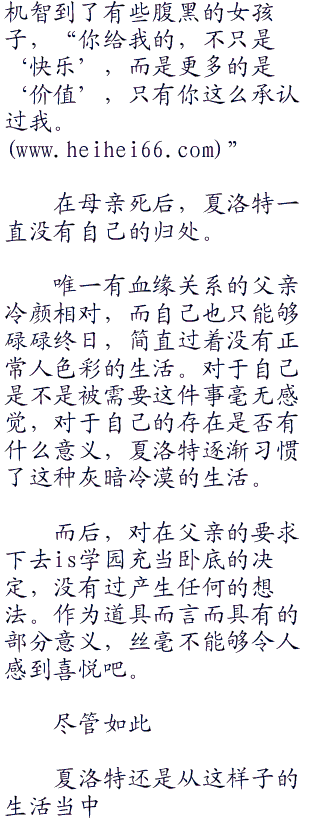 机智到了有些腹黑的女孩
子，“你给我的，不只是
‘快乐’，而是更多的是
‘价值’，只有你这么承认
过我。
(www.heihei66.com)”
在母亲死后，夏洛特一
直没有自己的归处。
唯一有血缘关系的父亲
冷颜相对，而自己也只能够
碌碌终日，简直过着没有正
常人色彩的生活。对于自己
是不是被需要这件事毫无感
觉，对于自己的存在是否有
什么意义，夏洛特逐渐习惯
了这种灰暗冷漠的生活。
而后，对在父亲的要求
下去is学园充当卧底的决
定，没有过产生任何的想
法。作为道具而言而具有的
部分意义，丝毫不能够令人
感到喜悦吧。
尽管如此
夏洛特还是从这样子的
生活当中